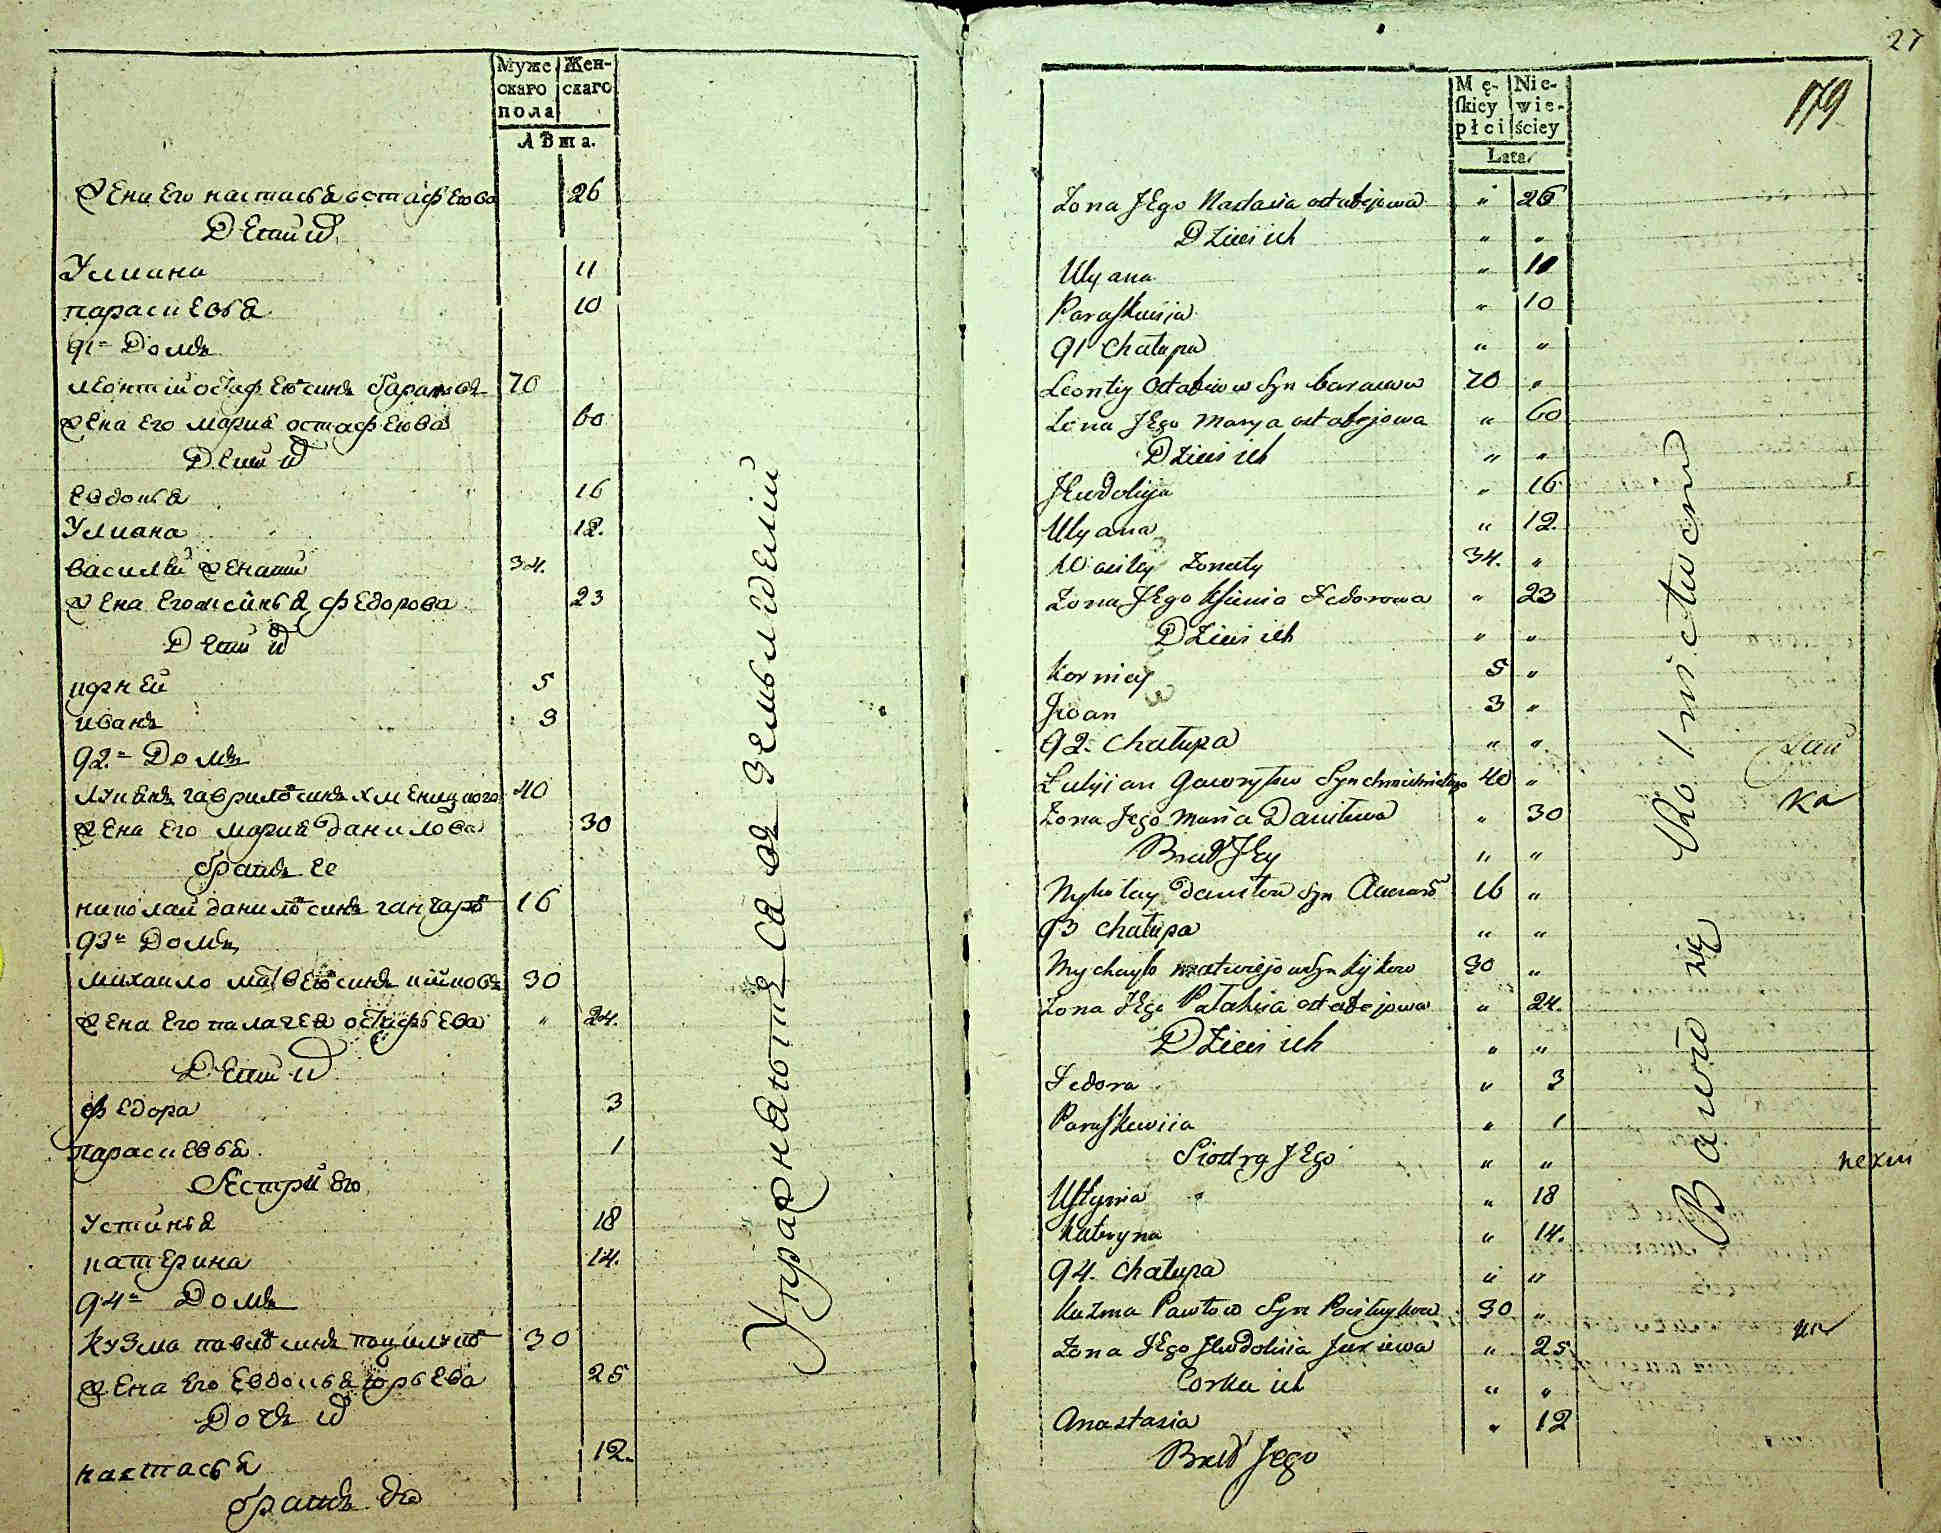 Муже
скаго
пола
Жен-
скаго
Лѣта.
Жена Его настасья остафЕева 26
Дети ихъ
Улиана 11
парасиевья 10
91 Домъ
леонтий остафЕевъ синъ барановъ 70
жена Его мария остафЕева 60
Дети ихъ
Евдокья 16
Улиана 12.
василий женатий 34.
жена Его ксинья федорова 23
Дети ихъ
корней 5
иванъ 3
92 Домъ
лукянъ гавриловъ синъ 40
жена Его мария данилова 30
братъ Ее
николай даниловъ синъ 16
93 Домъ
михаило матвеевъ синъ 30
жена Его палагея остафьева " 24.
Дети ихъ
федора 3
парасиевья 1
Сестри Его
устинья 18
катерина 14.
94 Домъ
кузма павловъ синъ 30
жена Его Евдокья юрьева 25
Дочь ихъ
настасья 12.
братъ Его
Упражняются въ земледелии
27
179
Mę-
skiey
płci
Nie-
wie-
ściey
Lata.
Zona JEgo Nastasia ostafiejowa " 26
Dzieci ich " "
Ulyana " 11
Paraskiewija " 10
91 Chałupa " "
Leontiy Ostafiiow Syn baranow 70 "
Zona JEgo Marya ostafiejowa " 60
Dzieci ich " "
Jewdokija " 16
Ulyana " 12.
Wasiley Zonaty 34. "
Zona JEgo Ksienia Fedorowa " 23
Dzieci ich " "
Korniey 5 "
Jwan 3 "
92. Chałupa " "
Łukjian Gawryłow Syn 40 "
Zona Jego Maria Daniłowa " 30
Brat JEy " "
Mykołay Daniłow Syn 16 "
93 Chałupa " "
Mychayło Matwiejow Syn 30 "
Zona JEgo Pałahia ostafiejowa " 24.
Dzieci ich " "
Fedora " 3
Paraskiewiia " 1
Siostry JEgo " "
Ustynia " 18
Kateryna " 14.
94. Chałupa " "
Kuzma Pawłow Syn 30 "
Zona JEgo Jewdokiia Juriewa " 25.
Corka ich " "
Anastasia " 12
Brat Jego
Bawio się Rolnictwem